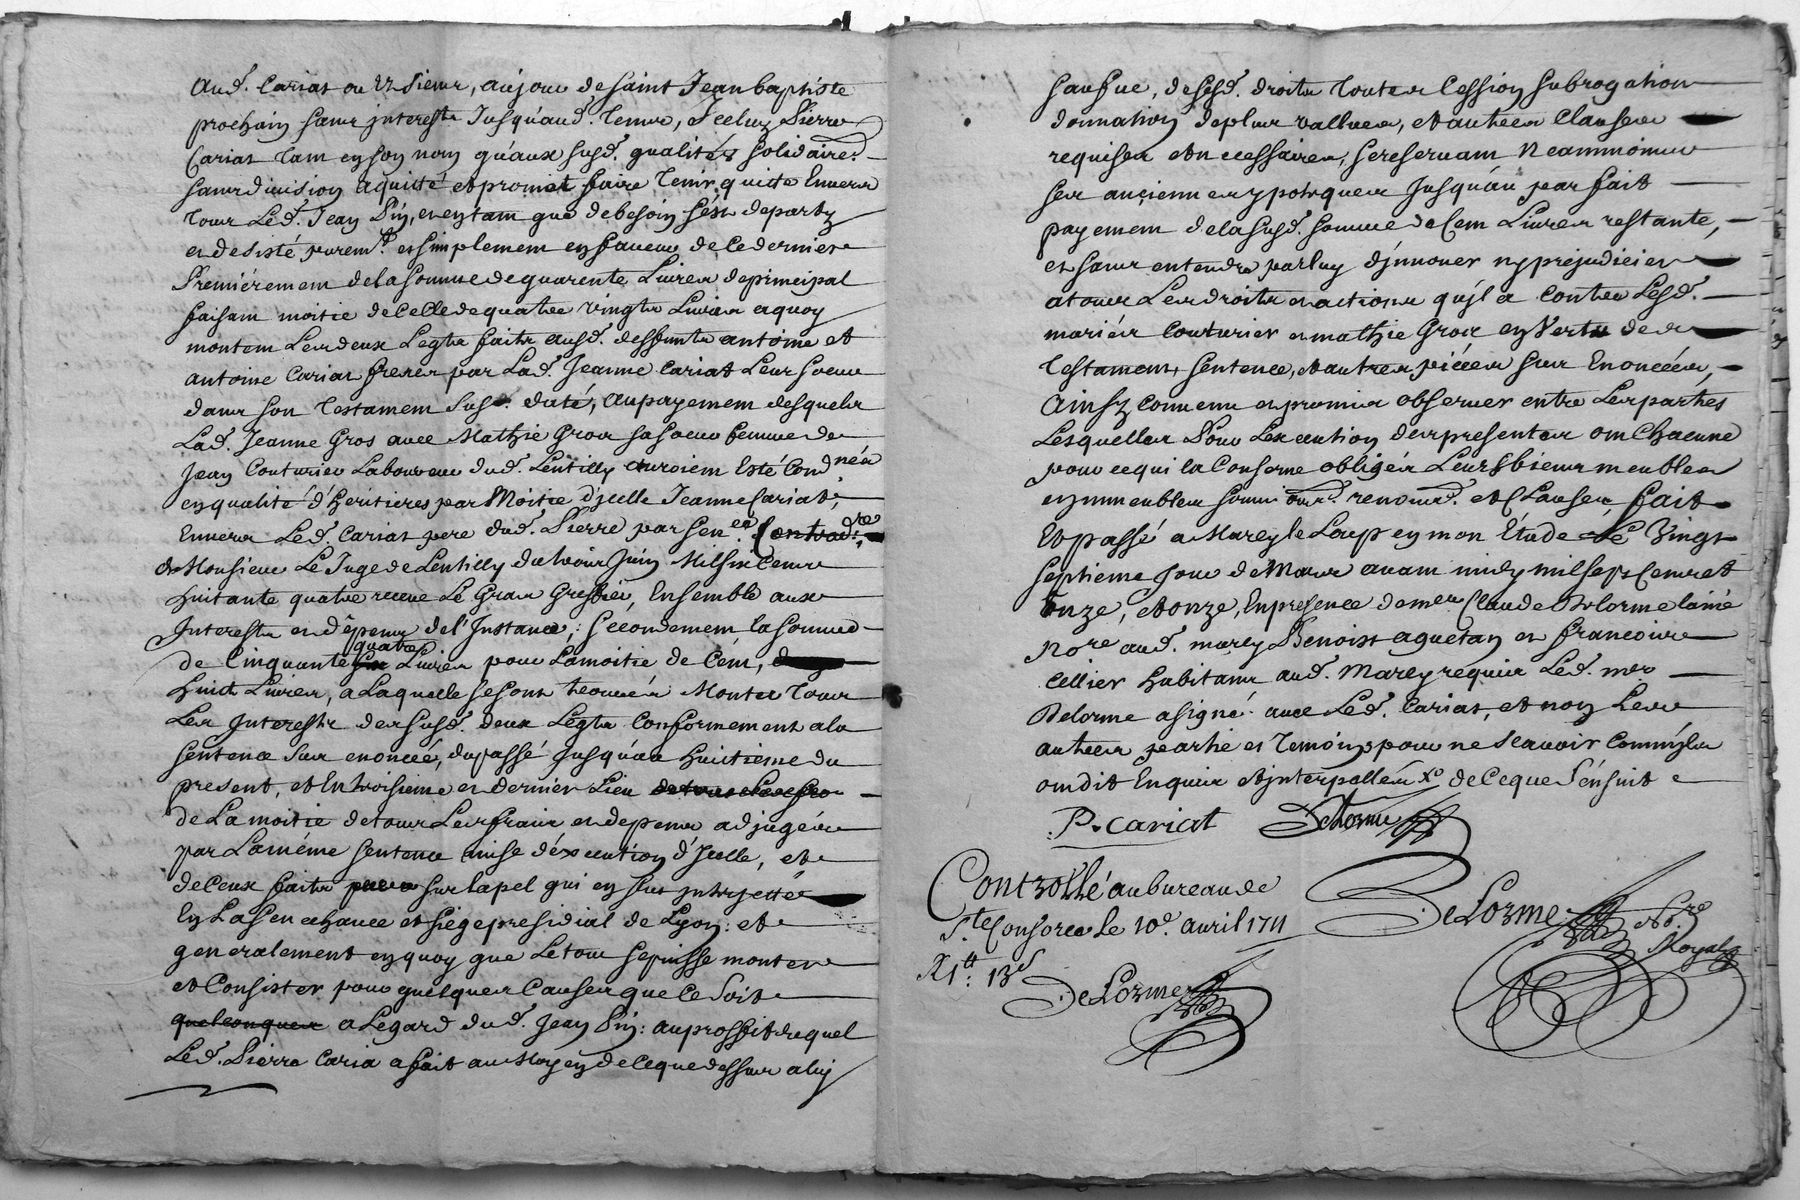 aud. Cariat ou ez siens, aujour de saint Jean baptiste
prochain sans interests Jusqu'aud. temps, Jceluy Pierre
Cariat tam en son nom qu'aux susd. qualités solidaire.
sans division aquitté et promet faire tenir quitte Envers
tous Led. Jean Pin, et en tam que de besoin s'est departy
et desisté purem.t et simplement en faveur de ce dernier
Premiérement de la somme de quarente Livres de principal
faisam moitie de celle de quatre vingts Livres a quoy
montent Les deux Legts faits ausd. deffunts antoine et
antoine Cariat freres par Lad. Jeanne Cariat Leur soeur
dans son testament susd. daté, au payement desquels
Lad. Jeanne Gros avec Mathie Gros sa soeur femme de
Jean Couturier Laboureur dud. Lentilly auroient Esté Condnées
en qualité d'heritieres par Moitie d'jcelle Jeanne Cariat,
Envers Led. Cariat pere dud. Pierre par sen.ce Contrad.re
de Monsieur Le Juge de Lentilly du trois Juin Mil six Cents
huitante quatre receue Le Gras Greffier, Ensemble aux
Interests et dépens de l'Instance; secondement la somme
de Cinquante quatre Livres pour La moitie de Cent,
huit Livres, a Laquelle se sont trouvés Monter tous
Les Interests des susd. deux Legts Conformement a la
sentence sus enoncée, du passé Jusqu'au huitieme du
present, et En troisieme et dernier Lieu
de La moitie de tous Les frais et depens adjugés
par La méme sentence mise d'éxecution d'Jcelle, et
de Ceux faits sur l'apel qui en fut interjetté
En La sen.echaucé et siege presidial de Lyon: et
generalement en quoy que Le tout se puisse monter
et Consister pour quelques Causes que Ce soit
quelconques a L'egard dud. Jean Pin: au proffit duquel
Led. Pierre Caria a fait au Moyen de Ce que dessus a luy
sauf ue, de sesd. droits toutes Cession subrogation
donnation de plus vallues, et autres Clauses
requises et necessaires, se reservant Neammoins
ses anciennes ypoteques Jusqu'au parfait
payement de la susd. somme de Cent Livres restante,
et sans entendre par luy d'innover ny prejudicier
a tous Les droits et actions qu'jl a Contre Lesd.
mariés Couturier et mathie Gros en Vertu des
testament, sentence, et autres piéces sus Enoncées,
Ainsy convenu et promis observer entre Les parties
Lesquelles Pour L'execution des presentes ont Chacune
pour ce qui la Conserne obligés Leurs biens meubles
et immeubles soumi ond. renond. et Clauses, fait
Et passé a Marcy le Loup en mon Étude Le Vingt
septieme Jour de Mars avant midy mil sept Cents et
onze, et onze, En presence de me. Claude Delorme lainé
No.re aud. marcy Benoist aguetan et francois
Cellier habitans aud. Marcy requis Led. me.
Delorme a signé avec Led. Cariat, et non Les
autres partie et temoins pour ne scavoir Comm'jls
ont dit Enquis et interpellés de Ce que s'ensuit
P. Cariat Delorme
Controllé au bureau de
S.te Consorce Le 10e. avril 1711
R 1tt: 13s
DeLorme
DeLorme No.re
Royal